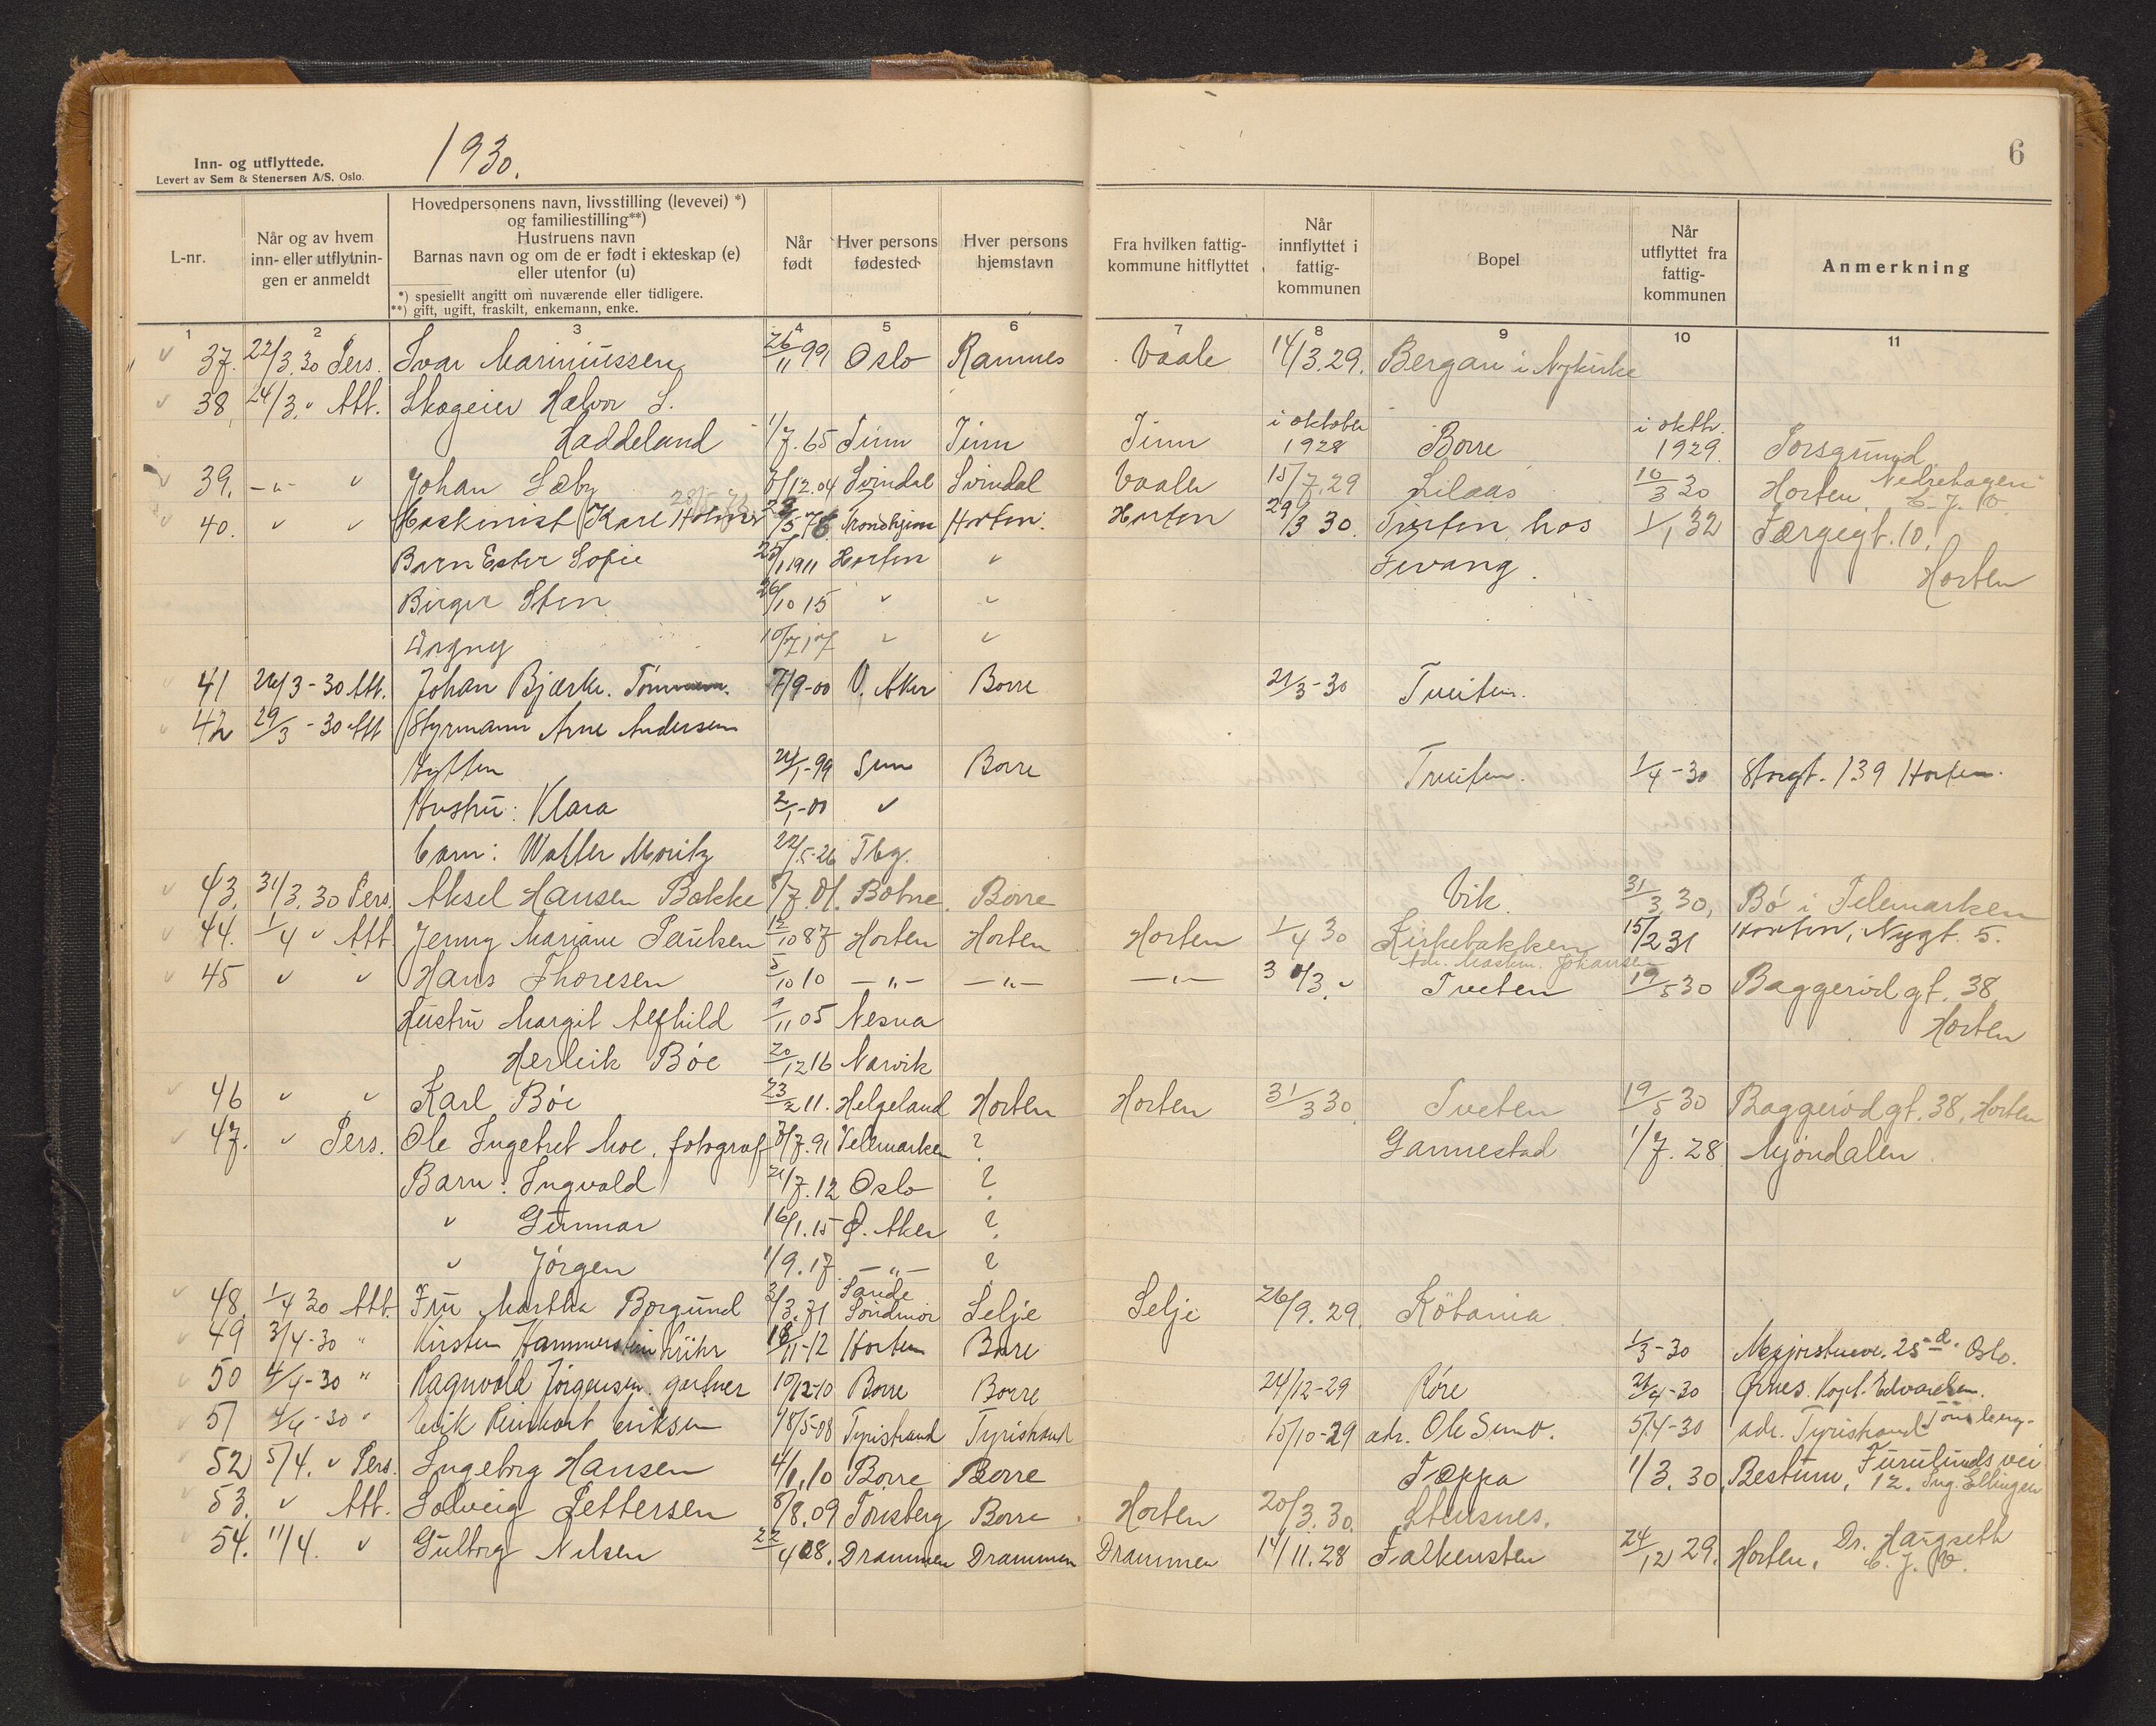 Inn- og utflyttede.
Levert av Sem & Stenersen A/S, Oslo.
1930.
6
L-nr.
Når og av hvem inn- eller utflytnin-gen er anmeldt
Hovedpersonens navn, livsstilling (levevei) *)
og familiestilling**)
Hustruens navn
Barnas navn og om de er født i ekteskap (e)
eller utenfor (u)
*) spesiellt angitt om nuværende eller tidligere.
**) gift, ugift, fraskilt, enkemann, enke.
Når født
Hver persons fødested
Hver persons hjemstavn
Fra hvilken fattig-kommune hitflyttet
Når innflyttet i fattig-kommunen
Bopel
Når utflyttet fra fattig-kommunen
Anmerkning
1 2 3 4 5 6 7 8 9 10 11
37. 22/3.30 Pers. Ivar Marinussen 26/11 99 Oslo Ramnes Vaale 14/3.29. Bergan i Nykirke
38, 24/3. " Att. Skogeier Halvor S.
Haddeland 1/7.65 Tinn Tinn Tinn i oktober 1928 Borre i oktbr. 1929. Porsgrund
39. -"- " Johan Sæby 8/12.04 Svindal Svindal Vaaler 15/7.29 Lilaas 10/3 30 Horten, Nedrehagen
40. " " Maskinist Karl Holmer /5 78 Trondhjem Horten. Horten 29/3 30. Tveiten, hos 1/1 32 Færgegt. 10.
Barn Ester Sofie 25/1 1911 Horten " Tevang. Horten
Birger Sten 26/10 15 " "
Dagny 10/7 17 " "
41 26/3-30 Att. Johan Bjærke. Tømmerm. 7/9-00 V. Aker Borre 21/3-30 Tveiten.
42 29/3-30 Att Styrmann Arne Andersen
Hytten 24/1-99 Sem Borre Tveiten. 1/4-30 Storgt. 139 Horten.
Hustru: Klara 2/1-00 "
barn: Walter Moritz 22/5-26 Tbg.
43. 31/3.30 Pers. Aksel Hansen Bakke 8/7.01. Botne. Borre Vik. 31/3.30, Bø i Telemarken
44. 1/4 " Att. Jenny Mariane Paulsen 12/10 87 Horten Horten Horten 1/4 30 Kirkebakken 15/2 31 Horten, Nygt. 5.
Adr. Maskm. Johansen
45 " " Hans Thoresen 5/10 10 -"- -"- -"- 31/3. " Tveten 19/5 30 Baggerødgt. 38
Hustru Margit Alfhild 9/11 05 Nesna Horten
Herleik Böe 20/12 16 Narvik
46 " " Karl Böe 23/2 11. Helgeland Horten Horten 31/3 30. Tveten 19/5 30 Baggerødgt. 38, Horten
47. " Pers. Ole Ingebret Moe, fotograf 8/7.91 Vellemarken ? Gannestad 1/7.28 Mjøndalen.
Barn: Ingvald 21/7.12 Oslo ?
" Gunnar 16/1.15 Ø. Aker ?
" Jørgen 1/9.17 -"- ?
48. 1/4 30 Att. Fru Martha Borgund 3/3.71 Sande Søndmør Selje Selje 26/9.29. Köbania.
49 3/4-30 " Kirsten Hammerstein Kiihr 18/11-12 Horten Borre 1/3-30 Majorstuvei. 25 d. Oslo.
50 4/4-30 " Ragnvald Jørgensen. gartner 10/12-10 Borre Borre 24/12-29 Røre 2/4-30 Ørnes. Kapt. Edvardsen.
51 4/4-30 " Erik Reinhart Eriksen 18/5-08 Tyristrand Tyristrand 15/10-29 adr. Ole Sund. 5/4-30 adr. Tyristrand Tønsberg.
52 5/4. " Pers. Ingeborg Hansen 4/1.10 Borre Borre Tæppa 1/3.30 Bestum, Furulundsvei 12. Ing. Ellingsen
53. " Att. Solveig Pettersen 8/8.09 Tønsberg Borre Horten 20/3.30. Stusnes.
54. 11/4. " Gulborg Nilsen 22/4 08. Drammen Drammen Drammen 14/11.28 Falkensten 24/12 29. Horten. Dr. Hargseth